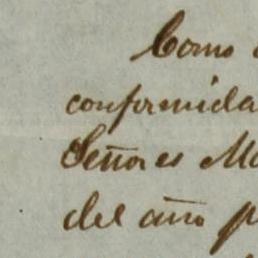 Como
conformida
Señores Ma
del año p